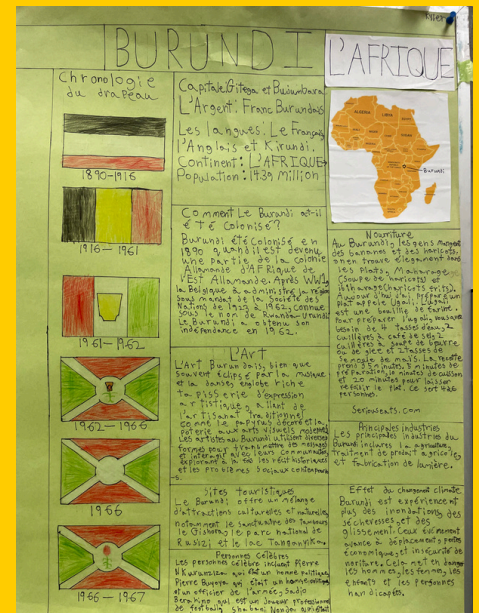 BURUNDI
L'AFRIQUE
Chronologie
du drapeau
1890-1916
1916 - 1961
1961-1962
1962-1966
1966
1966-1967
Capitale Gitega et Bujumbura
L'Argent: Franc Burundais
Les langues: Le Français
l'Anglais et Kirundi.
Continent: L'AFRIQUE
Population: 14.39 Million
Comment Le Burundi at-il
été colonisé?
Burundi été colonisé en
1890 quand il est devenu
une partie de la colonie
Allemande d'AFRique de
l'EST Allemande. Après WW1,
la Belgique a administré la région
sous mandat de la Société des
Nations de 1923 à 1962, connue
sous le nom de Rwanda-Urundi
Le Burundi a obtenu son
indépendance en 1962.
L'Art
L'Art Burundais, bien que
souvent éclipsé par la musique
et la danse, englobe riche
tapisserie d'expression
artistique, allant de
l'artisanat traditionnel
comme le papyrus décoré et la
poterie aux arts visuels modernes
Les artistes au Burundi utilisent diverses
formes pour transmettre des messages
et interagir avec leurs communautés
explorant à la fois des récit historiques
et les problèmes sociaux contemporains
Sites touristiques
Le Burundi offre un mélange
d'attractions culturelles et naturelles,
notamment le sanctuaire des tambours
de Gishora, le parc national de
Rusizi et le lac Tanganyika
Personnes Célèbres
Les personnes célèbre incluent Pierre
Nkurunziza qui été un homme politique,
Pierre Buyoya qui était un homme politique
et un officier de l'armée, Saido
Berahino qui est un joueur professionnel
de football, Shabani Nonda qui était
ALGERIA
LIBYA
Burundi
Nourriture
Au Burundi, les gens mangent
des bananes et des haricots.
on en trouve élegament dans
les plats, Maharage
(soupe de haricots) et
ibiharage (haricots frits).
Aujourd'hui j'ai préparé un
plat appelé Ugali. L'Ugali
est une bouillie de farine.
Pour préparer l'ugali, nous avons
besoin de 4 tasses d'eau, 2
cuillères à café de sel, 2
cuillères à soupe de beurre
ou de glee et 2 tasses de
semoule de maïs. La recette
prend 35 minutes. 5 minutes de
préparation, 10 minutes de cuisson
et 20 minutes pour laisser
refroidir le plat. Ce sert 4 à 6
personnes.
Seriouseats.com
Principales industries
Les principales industries du
Burundi inclures la agriculture,
traitment de produit agricoles
et fabrication de lumière.
Effet du changement climate
Burundi est expérienceant
plus des inondations, des
sécheresses, et des
glissement. Ceux événement
avance à déplacement, pertes
économique, et insécurité de
noriture. Cela met en danger
les hommes, les femmes, les
enfants et les personnes
handicapés.